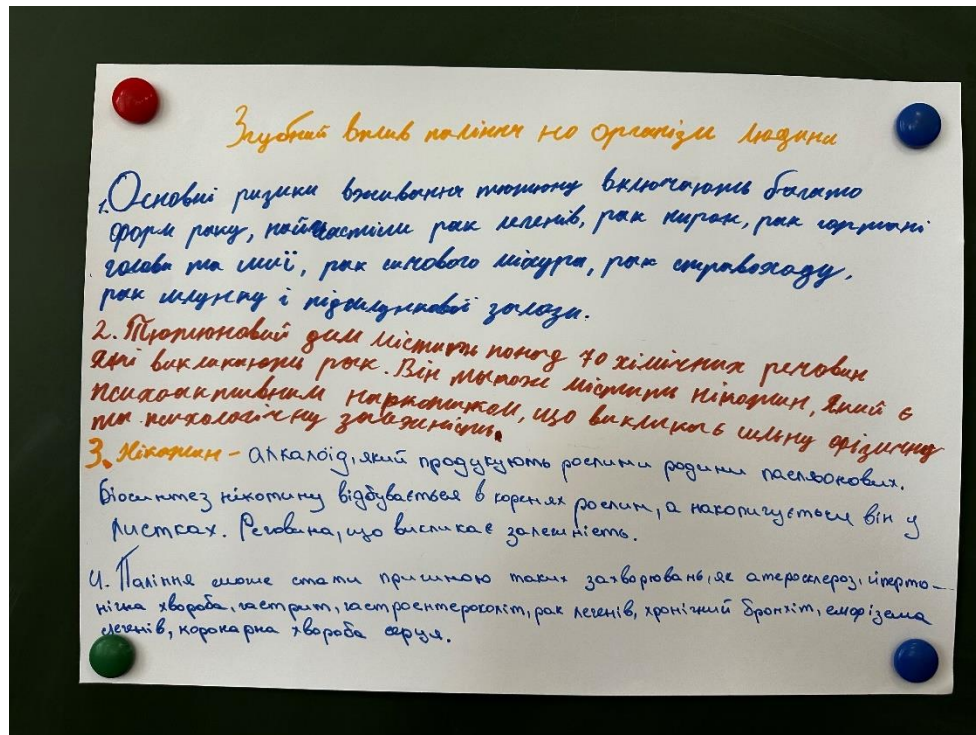 Згубний вплив паління на організм людини
1. Основні ризики вживання тютюну включають багато
форм раку, найчастіли рак легенів, рак нирок, рак гортані
голови та шиї, рак сичового міхура, рак стравоходу,
рак шлунку і підшлункової залози.
2. Тютюновий дим містить понад 70 хімічних речовин
які викликають рак. Він також містить нікотин, який є
психоактивним наркотиком, що викликає сильну фізичну
та психологічну залежність.
3. Нікотин - алкалоїд, який продукують рослини родини пасльонових.
Біосинтез нікотину відбувається в коренях рослин, а накопичується він у
листках. Речовина, що викликає залежність.
4. Паління може стати причиною таких захворювань, як атеросклероз, іперто-
нічна хвороба, гастрит, гастроентероколіт, рак легенів, хронічний бронхіт, емфізема
легенів, коронарна хвороба серця.